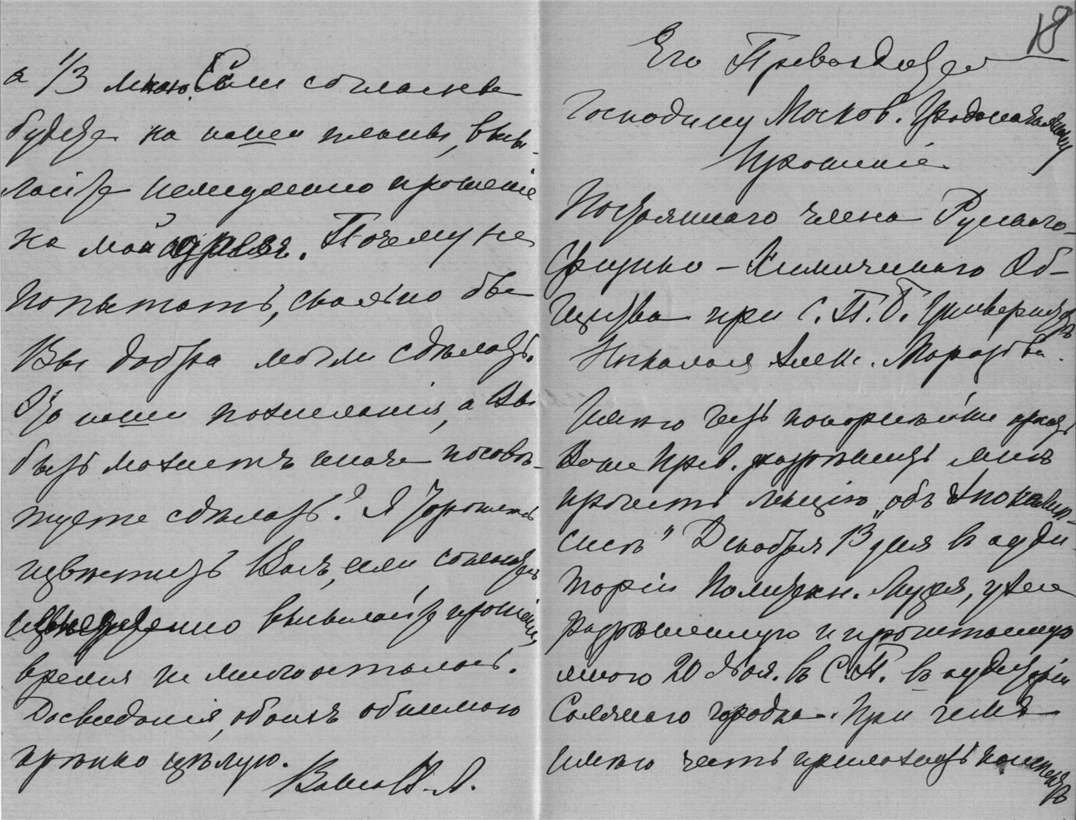 а 1/3 мною. Если согласны
будете на наши планы, высы-
лайте немедленно прошеніе
на мой адресъ. Почему не
попытать, сколько бы
Вы добра могли сдѣлать.
Это наши пожеланія, а Вы
быть можетъ иначе посовѣ-
туете сдѣлать? Я
извѣстить Васъ, если согласны
немедленно высылайте прошеніе,
время не много осталось.
Досвиданія, обоихъ обнимаю
крѣпко цѣлую.
Ваша
18
Его Превосход
Господину Москов. Градоначальнику
Прошеніе
члена Русскаго
Физико-Химическаго Об-
щества при С.П.Б. Университетѣ
Николая Алекс. Морозова.
Имѣю честь покорнѣйше просить
Ваше Прев. разрѣшить мнѣ
прочесть лекцію „объ Апокалип-
сисѣ" Декабря 13 дня въ ауди-
торіи Политехн. Музея, уже
разрѣшенную и прочитанную
мною 20 Ноя. въ С.П. въ аудиторіи
Солянаго городка. При чемъ
имѣю честь приложить